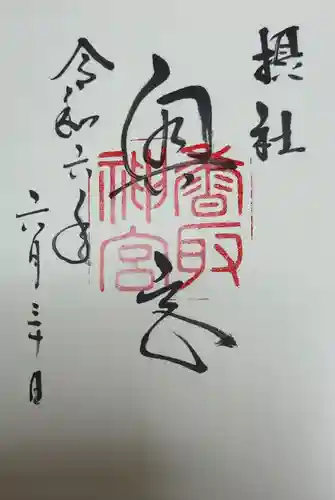 摂社
奥宮
香取
神宮
令和六年
六月三十日